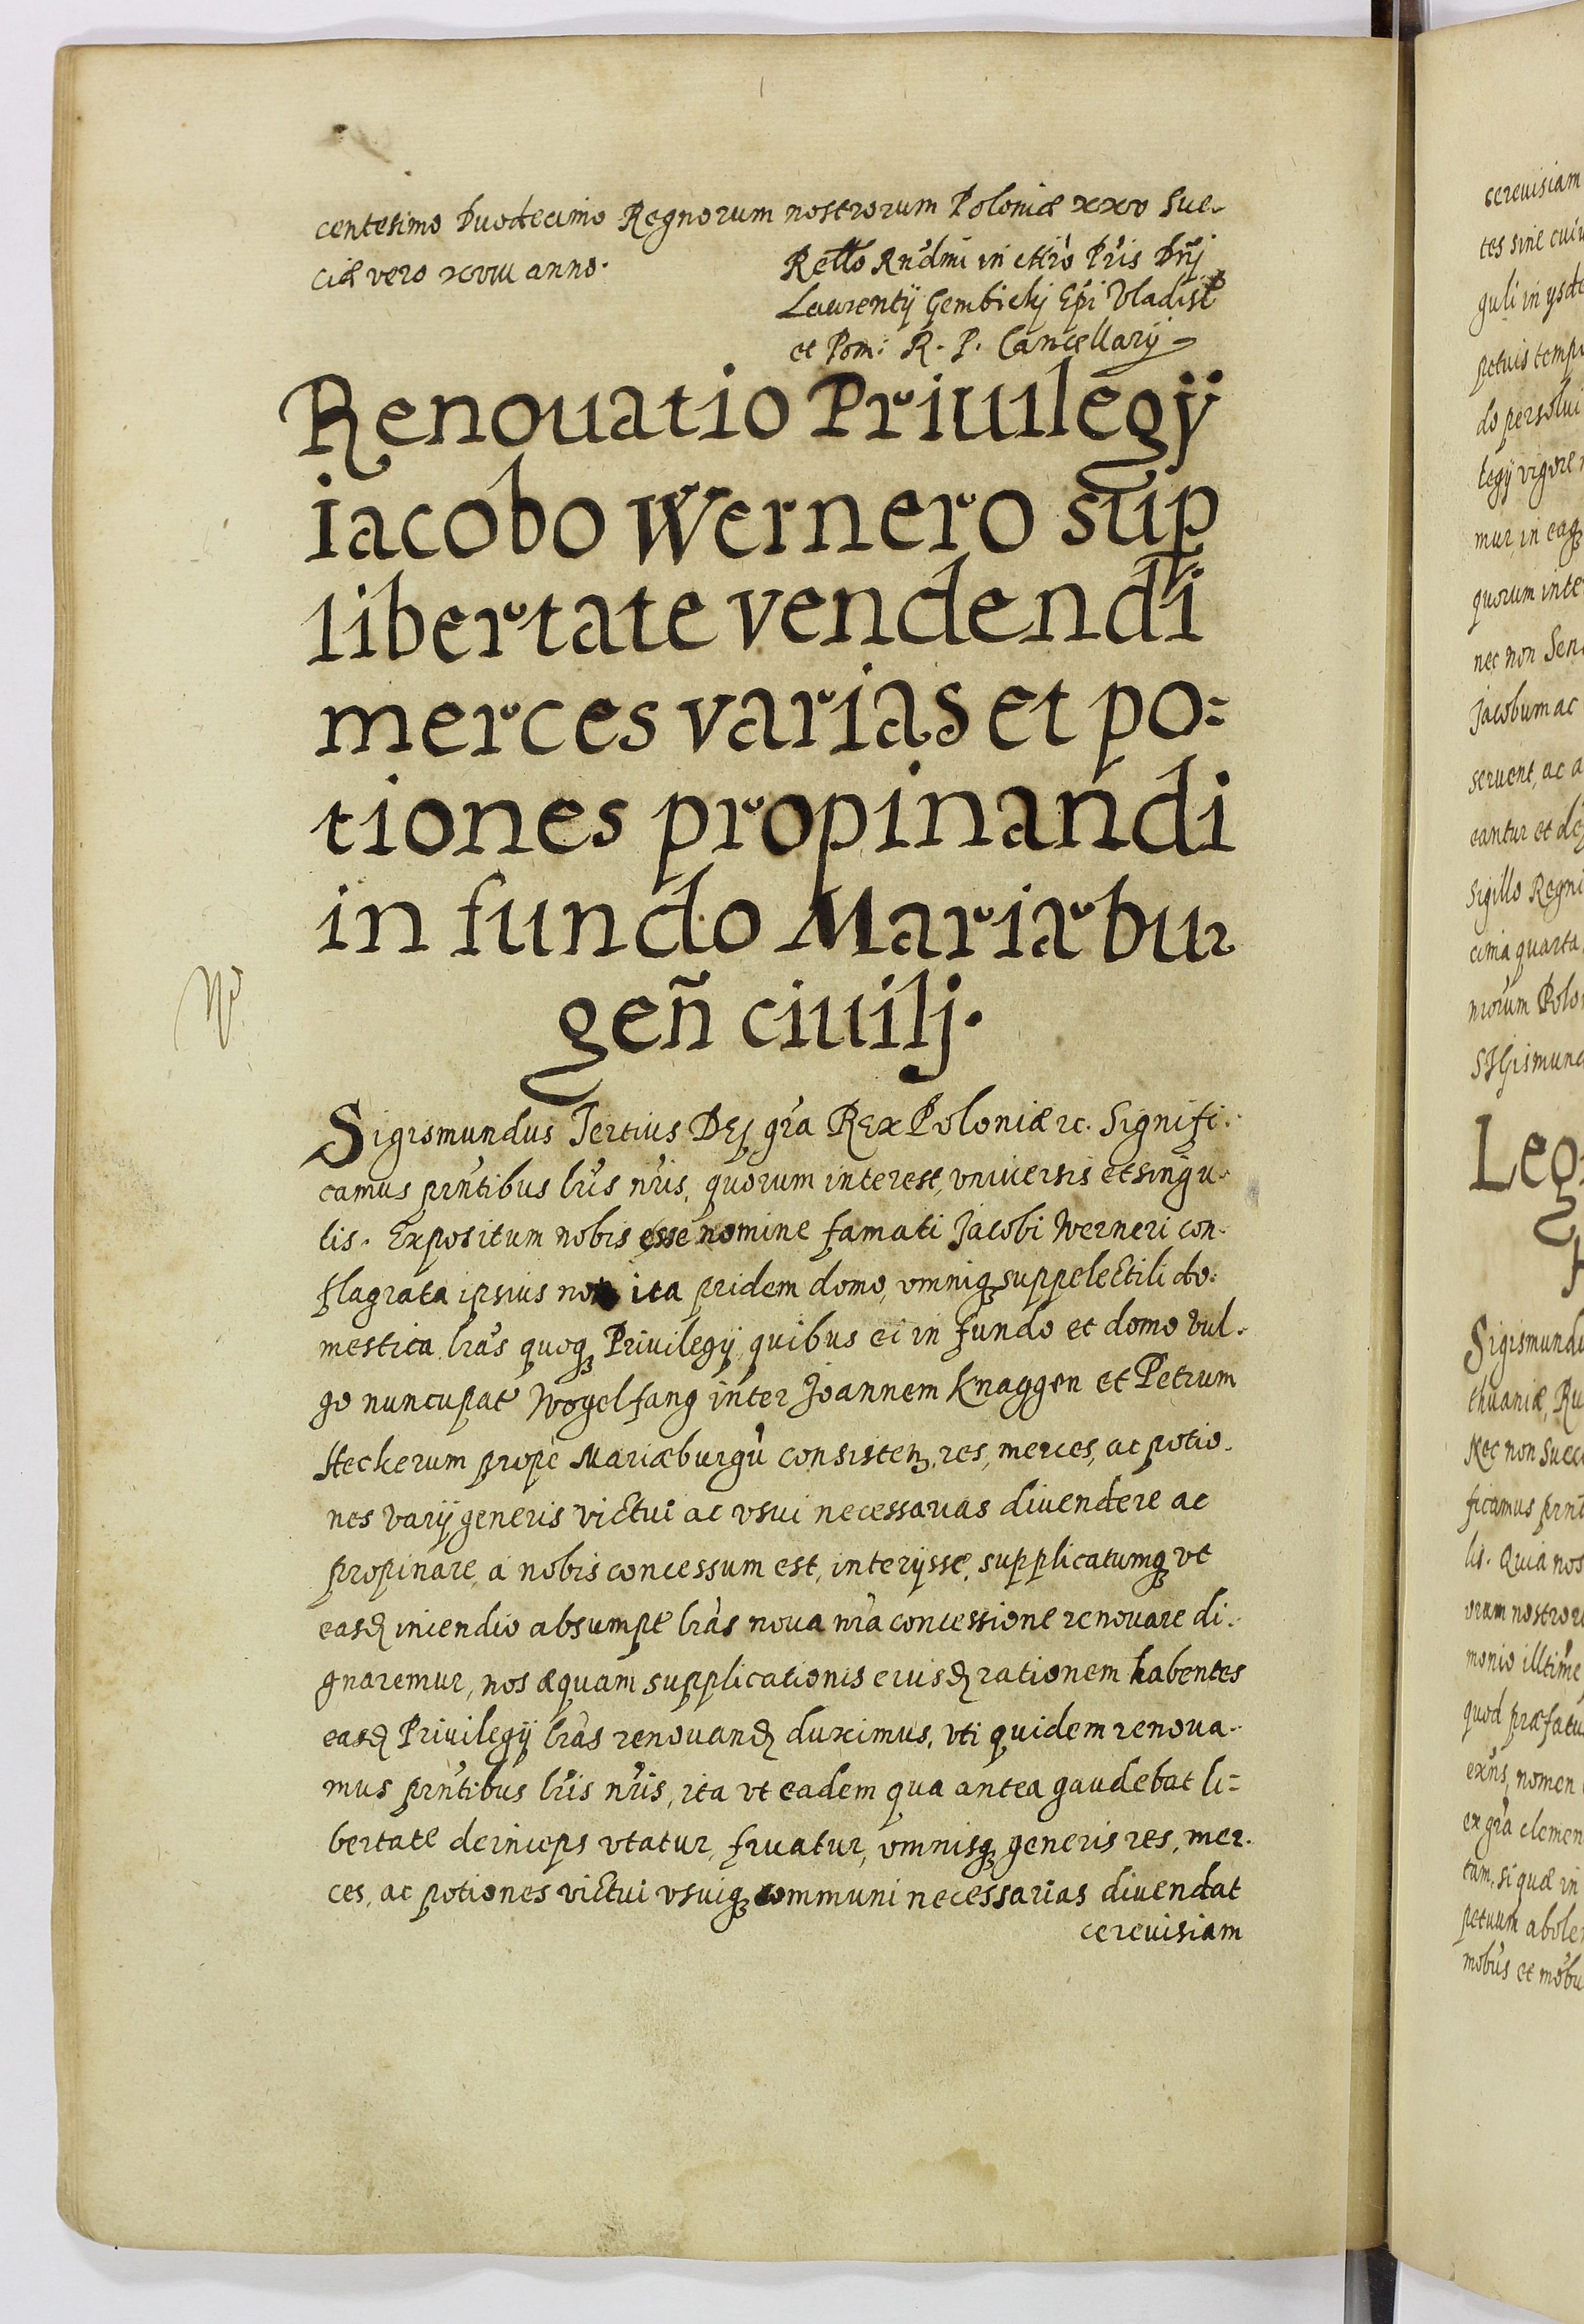 centesimo Duodecimo Regnorum nostrorum Poloniæ xxv Sue-
ciæ vero xviii anno.
Rello Rñdmi in Chrõ Pris Dñj
Laurentij Gembickj Epi Vladisl
et Pom: R. P. Cancellarij
Renouatio Priuilegij
Iacobo Wernero sup
libertate vendendi
merces varias et po=
tiones propinandi
in fundo Mariæbur
geñ ciuilj.
Sigismundus Tertius Dej gra Rex Poloniæ rc. Signifi-
camus prntibus lris nris, quorum interest, vniuersis et singu-
lis. Expositum nobis esse nomine famati Jacobi Werneri con-
flagrata ipsius non ita pridem domo, omniq suppelectili do-
mestica lras quoq Priuilegij quibus ei in fundo et domo vul-
go nuncupat Vogelfang inter Joannem Knaggen et Petrum
Heckerum prope Mariæburgu consisten, res, merces, ac potio-
nes varij generis victui ac vsui necessarias diuendere ac
propinare a nobis concessum est, interijsse, supplicatumq vt
easd incendio absumpt lras noua nra concessione renouare di-
gnaremur, nos æquam supplicationis eiusd rationem habentes
easd Priuilegij lras renouand duximus, vti quidem renoua-
mus prntibus lris nris, ita vt eadem qua antea gaudebat li=
bertate deinceps vtatur, fruatur, omnisq generis res, mer-
ces, ac potiones victui vsuiq communi necessarias diuendat
cereuisiam
cereuisiam
tes sine
guli in
do persolui
mur, in eaq
quorum inte
nec non Sen
Jacobum ac
seruent, ac a
eantur et
Sigillo Regni
cima quarta
Leg
Sigismund
thuaniæ, Ru
Nec non Suec
ficamus prnt
lis. Quia nos
monio
quod præfatu
exñs, nomen
ex gra clemen
tam, si quæ in
petuum abole
mobus et mobu